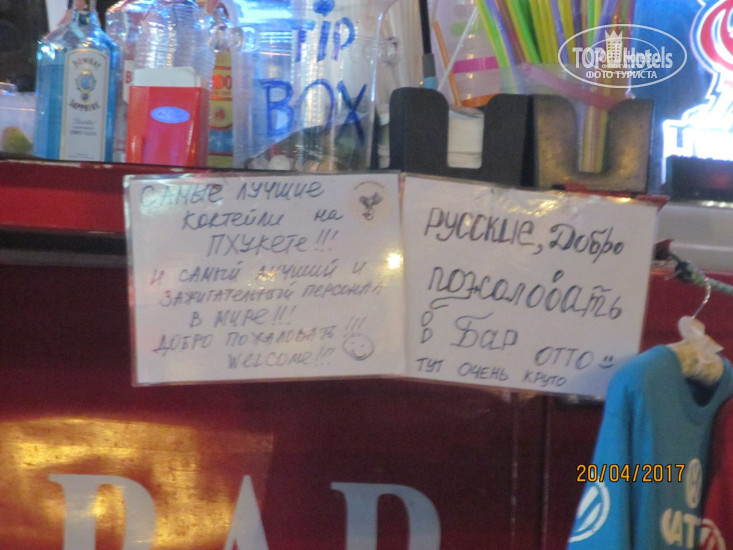 TOPHotels
ФОТО ТУРИСТА
BOMBAY
SAPPHIRE
TIP
BOX
САМЫЕ ЛУЧШИЕ
КОКТЕЙЛИ на
ПХУКЕТЕ!!!
И САМЫЙ ЛУЧШИЙ И
ЗАЖИГАТЕЛЬНЫЙ ПЕРСОНАЛ
В МИРЕ!!!
ДОБРО ПОЖАЛОВАТЬ!!!
WELCOME!!!
РУССКИЕ, Добро
пожаловать
в Бар ОТТО
ТУТ ОЧЕНЬ КРУТО
20/04/2017
BAR